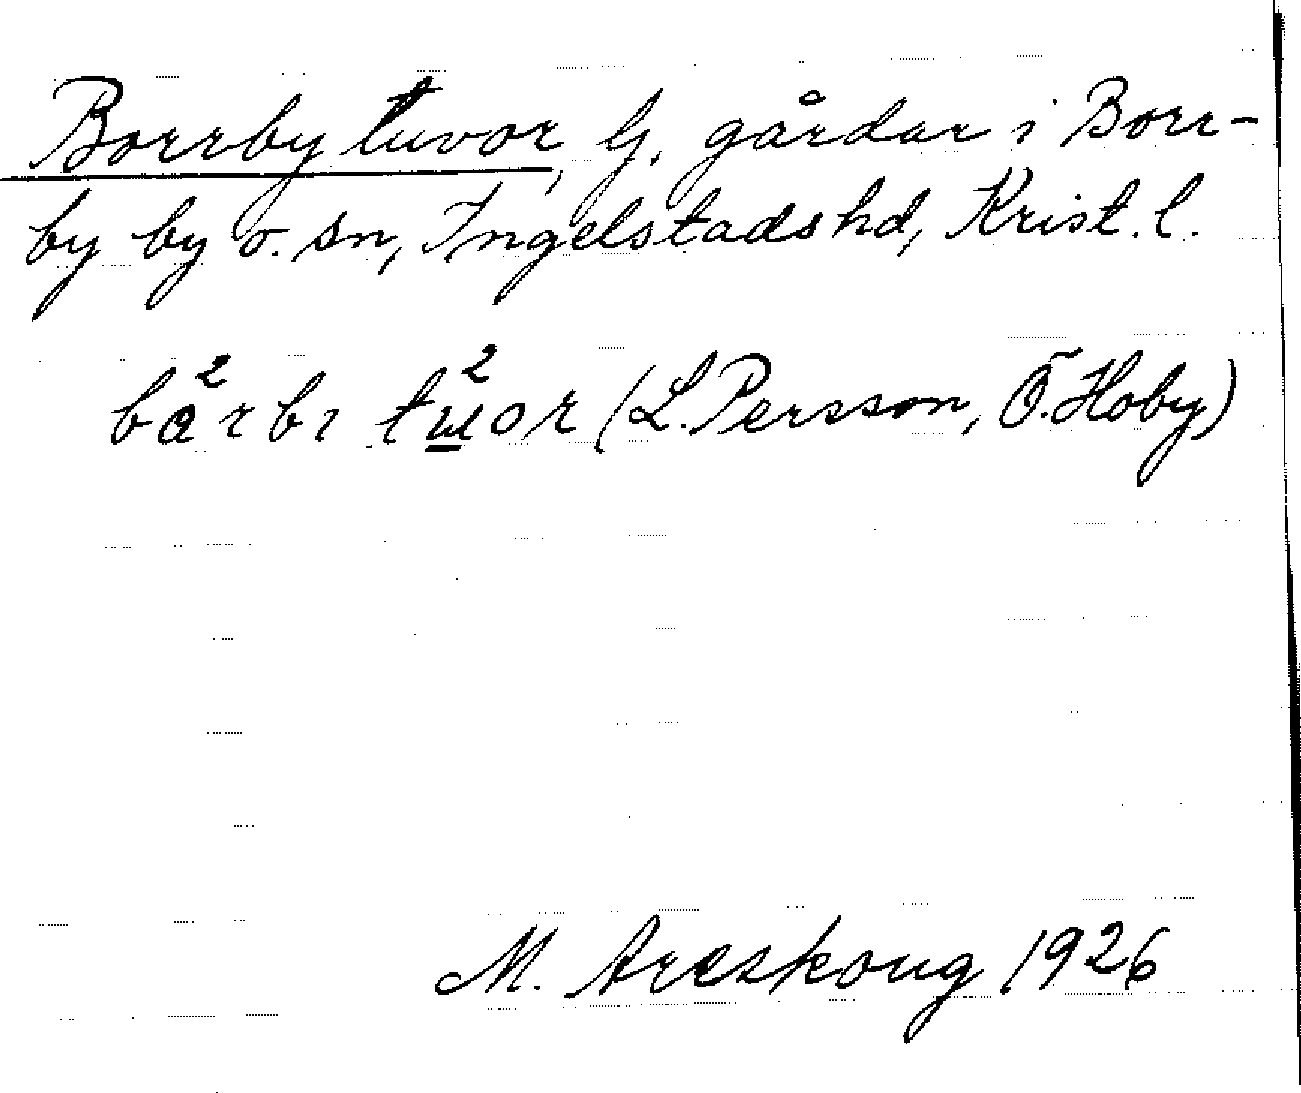 Borrby tuvor, G, gårdar i Borr-
by by o. sn, Ingelstads hd, Krist. l.
ba²rbı tɯ²or (L. Persson, Ö. Hoby)
M. Areskoug 1926